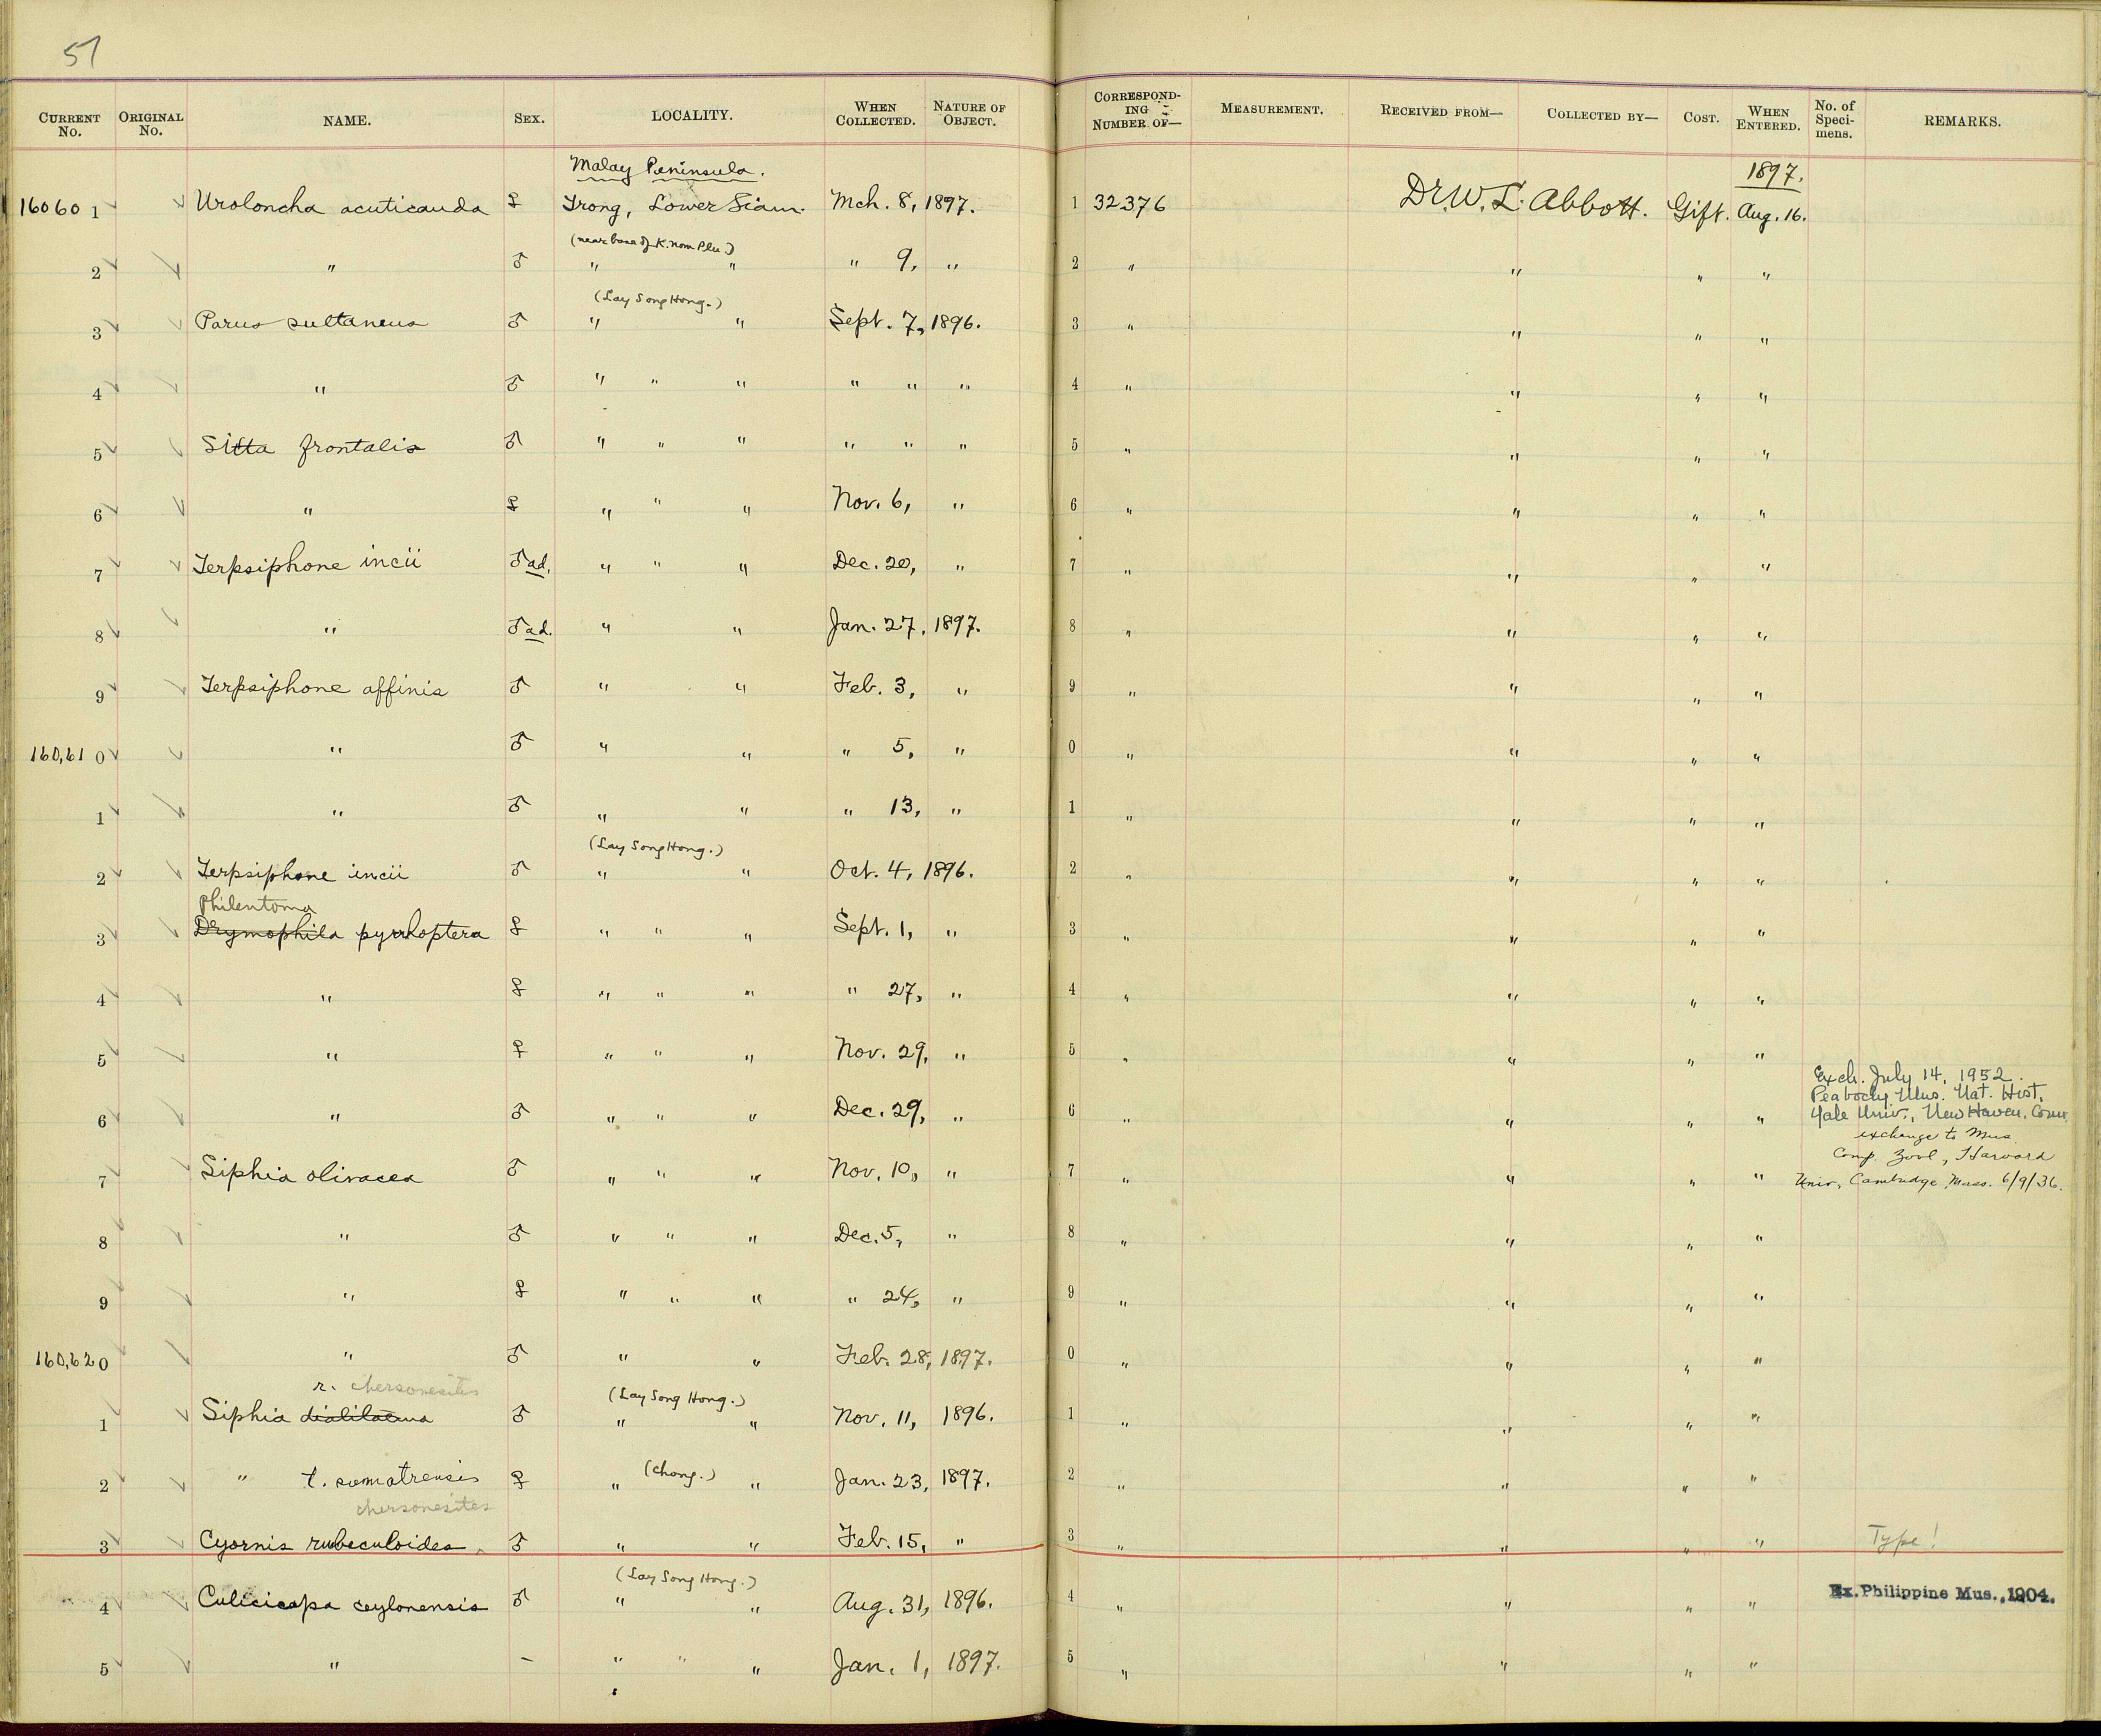 57
CURRENT No. ORIGINAL No. NAME. SEX. LOCALITY. WHEN COLLECTED. NATURE OF OBJECT. CORRESPONDING NUMBER OF— MEASUREMENT. RECEIVED FROM— COLLECTED BY— COST. WHEN ENTERED. No. of Specimens. REMARKS.
Malay Peninsula. 1897.
16060 1 Uroloncha acuticauda ♀ Trong, Lower Siam. Mch. 8, 1897. 1 32376 Dr. W. L. Abbott. Gift. Aug. 16.
(near base of K. nom Plu.)
2 " ♂ " " " 9, " 2 " " " "
(Lay Song Hong.)
3 Parus sultaneus ♂ " " Sept. 7, 1896. 3 " " " "
4 " ♂ " " " " " " 4 " " " "
5 Sitta frontalis ♂ " " " " " " 5 " " " "
6 " ♀ " " " Nov. 6, " 6 " " " "
7 Terpsiphone incii ♂ ad. " " " Dec. 20, " 7 " " " "
8 " ♂ ad. " " Jan. 27, 1897. 8 " " " "
9 Terpsiphone affinis ♂ " " Feb. 3, " 9 " " " "
160,61 0 " ♂ " " " 5, " 0 " " " "
1 " ♂ " " " 13, " 1 " " " "
(Lay Song Hong.)
2 Terpsiphone incii ♂ " " Oct. 4, 1896. 2 " " " "
Philentoma
3 Drymophila pyrrhoptera ♀ " " " Sept. 1, " 3 " " " "
4 " ♀ " " " " 27, " 4 " " " "
5 " ♀ " " " Nov. 29, " 5 " " " "
Exch. July 14, 1952.
Peabody Mus. Nat. Hist,
6 " ♂ " " " Dec. 29, " 6 " " " " Yale Univ., New Haven, Conn
exchange to Mus.
Comp. Zool, Harvard
7 Siphia olivacea ♂ " " " Nov. 10, " 7 " " " " Univ, Cambridge, Mass. 6/9/36.
8 " ♂ " " " Dec. 5, " 8 " " " "
9 " ♀ " " " " 24, " 9 " " " "
160,62 0 " ♂ " " Feb. 28, 1897. 0 " " " "
r. chersonesites (Lay Song Hong.)
1 Siphia dialilaema ♂ " " Nov. 11, 1896. 1 " " " "
2 " t. sumatrensis ♀ " (Chong.) " Jan. 23, 1897. 2 " " " "
chersonesites
3 Cyornis rubeculoides ♂ " " Feb. 15, " 3 " " " " Type!
(Lay Song Hong.)
4 Culicicapa ceylonensis ♂ " " Aug. 31, 1896. 4 " " " " Ex. Philippine Mus., 1904.
5 " – " " " Jan. 1, 1897. 5 " " " "